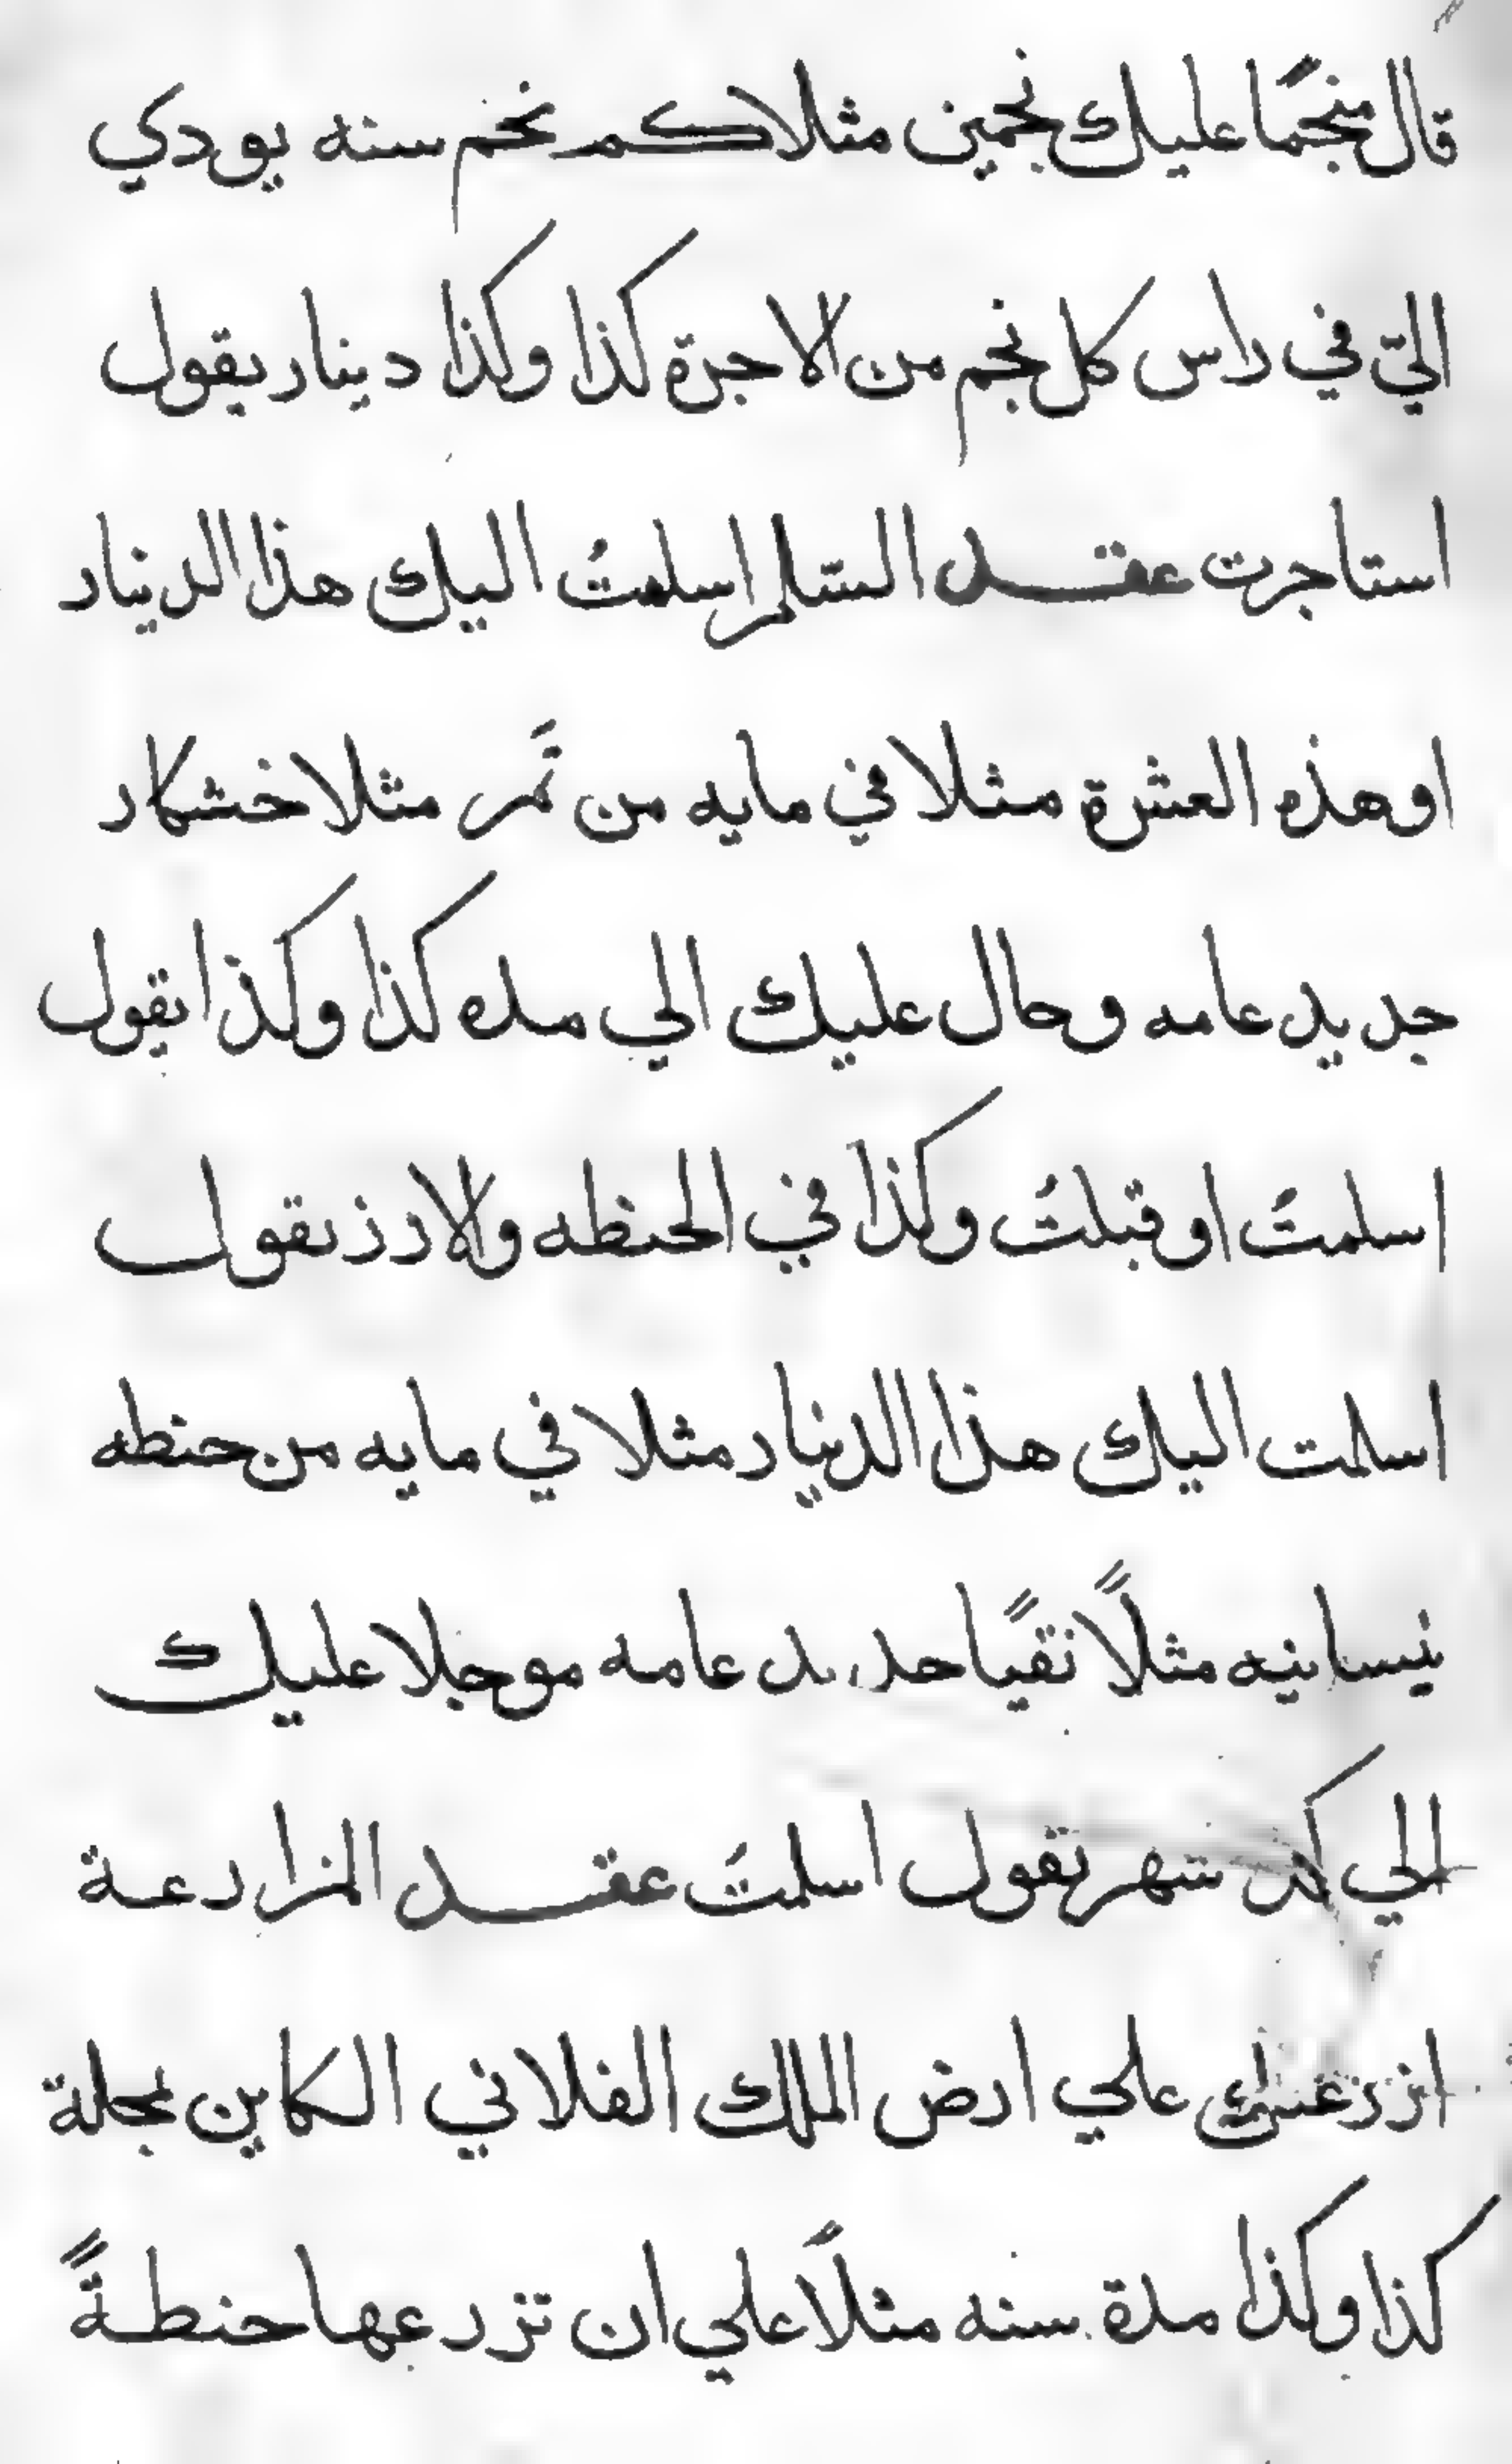 قال منجمًا عليك نجمين مثلا كم نجم سنه يودي
اليّ في راس كل نجم من الاجرة كذا وكذا دينار يقول
استاجرت عقد السّلم اسلمتُ اليك هذا الدينار
او هذه العشرة مثلا في مايه من تَمر مثلا خشكار
جديد عامه وحال عليك الي مده كذا وكذا يقول
اسلمتَ او قبلتُ وكذا في الحنطه والارز يقول
اسلمت اليك هذا الدينار مثلا في مايه من حنطه
نيسانيه مثلاً نقيًا جديد عامه موجلا عليك
الي كذا شهر يقول اسلمتَ عقد المزارعة
علي ارض الملك الفلاني الكاين بمحلة
كذا وكذا مدة سنه مثلاً علي ان تزرعها حنطةً